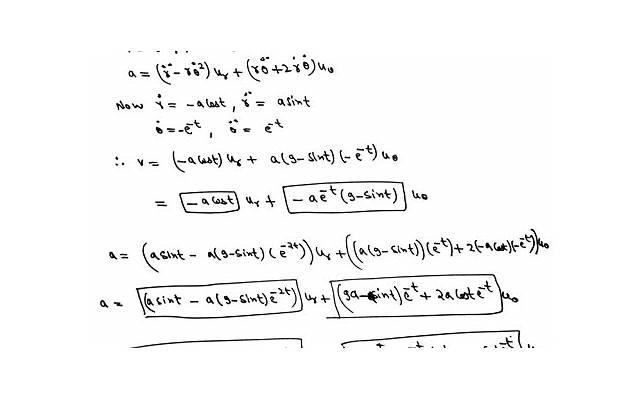 a = (r̈ - rθ̇²) u_r + (rθ̈ + 2ṙθ̇) u_θ
Now ṙ = -a cost, r̈ = a sint
θ̇ = -e^-t, θ̈ = e^-t
∴ v = (-a cost) u_r + a(9-sint)(-e^-t) u_θ
= -a cost u_r + -ae^-t(9-sint) u_θ
a = (a sint - a(9-sint)(e^-2t)) u_r + ((a(9-sint))(e^-t) + 2(-a cost)(-e^-t)) u_θ
a = (a sint - a(9-sint)e^-2t) u_r + (9a- sint)e^-t + 2a cost e^-t u_θ